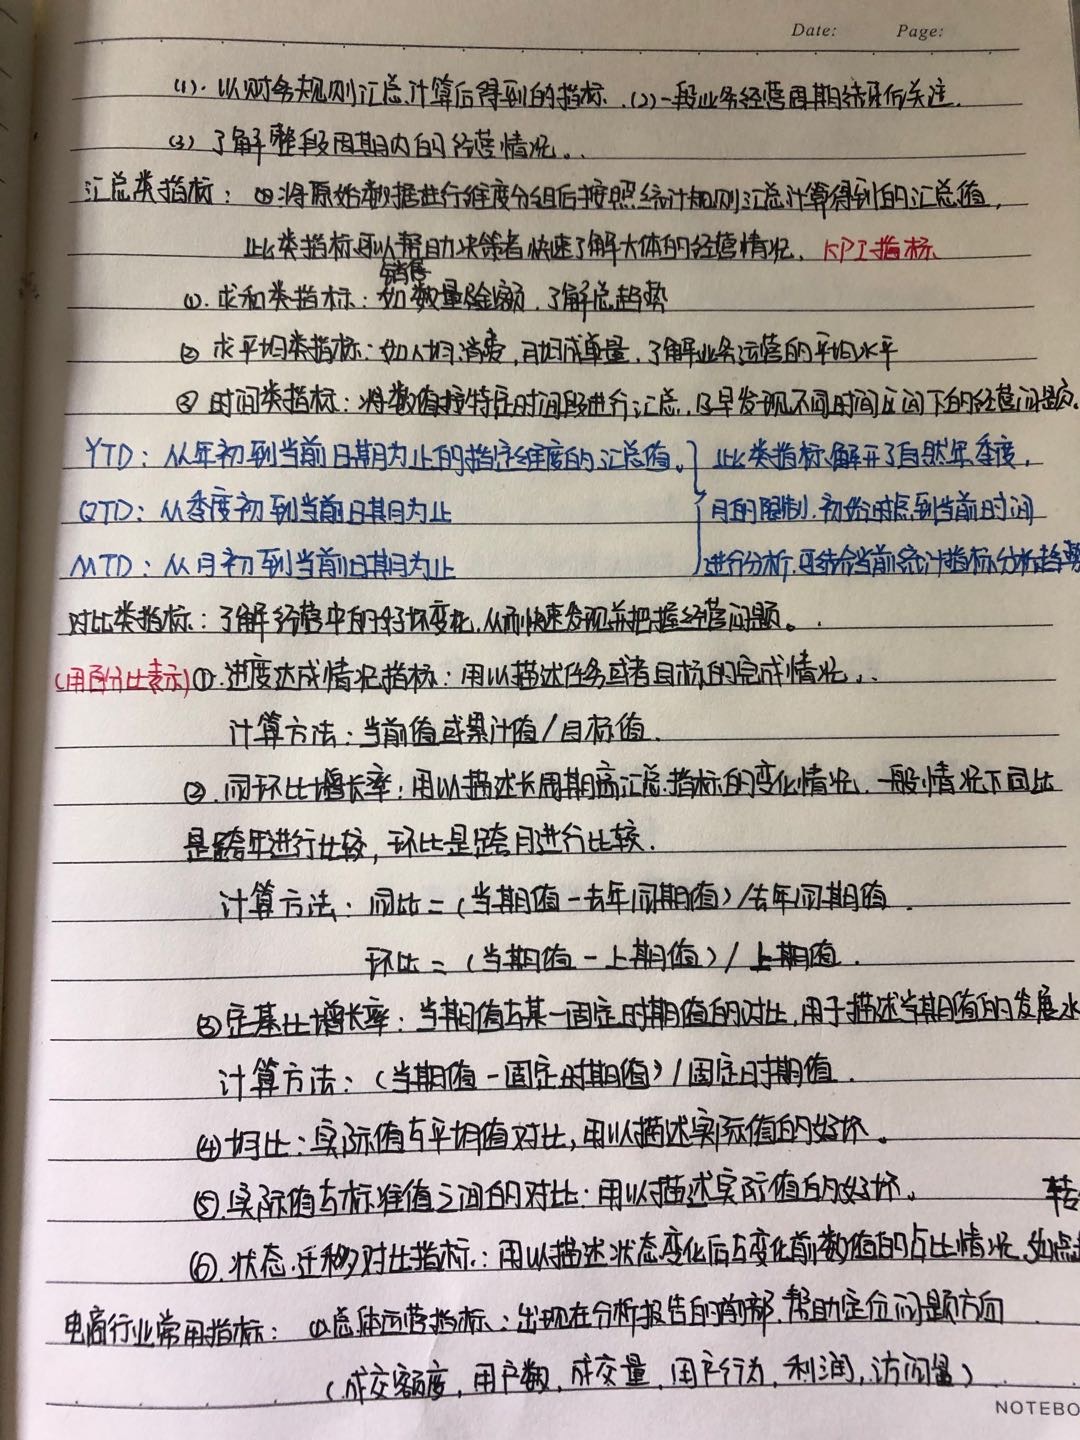 Date: Page:
(1). 以财务规则汇总计算后得到的指标. (2)一般业务经营周期结束后关注.
(3) 了解整段周期内的经营情况。
汇总类指标: ①将原始数据进行维度分组后按照统计规则汇总计算得到的汇总值,
此类指标可以帮助决策者快速了解大体的经营情况. KPI指标
销售
①. 求和类指标: 如数量金额. 了解总趋势
② 求平均类指标: 如人均消费, 月均成单量. 了解业务运营的平均水平
③ 时间类指标: 将数值按特定时间段进行汇总. 及早发现不同时间区间下的经营问题.
YTD: 从年初到当前日期为止的指定维度的汇总值. 此类指标解开了自然年季度.
QTD: 从季度初到当前日期为止 月的限制. 初始时点到当前时间
MTD: 从月初到当前日期为止 进行分析. 要结合当前统计指标分析趋势
对比类指标: 了解经营中的好坏变化. 从而快速发现并把握经营问题。
(用百分比表示) ①. 进度达成情况指标: 用以描述任务或者目标的完成情况.
计算方法: 当前值或累计值/目标值.
②. 同环比增长率: 用以描述长周期高汇总指标的变化情况. 一般情况下同比
是跨年进行比较, 环比是跨月进行比较.
计算方法: 同比=(当期值-去年同期值)/去年同期值.
环比=(当期值-上期值)/上期值.
③ 定基比增长率: 当期值与某一固定时期值的对比, 用于描述当期值的发展水
计算方法: (当期值-固定时期值)/固定时期值.
④ 均比: 实际值与平均值对比, 用以描述实际值的好坏。
⑤. 实际值与标准值之间的对比: 用以描述实际值的好坏。 转
⑥. 状态迁移对比指标: 用以描述状态变化后与变化前数值的占比情况. 如点
电商行业常用指标: ①总体运营指标: 出现在分析报告的前部. 帮助定位问题方向
(成交额度, 用户数, 成交量, 用户行为, 利润, 访问量)
NOTEBO